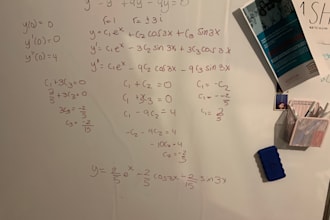 y''' - y'' + 4y' - 4y = 0
y(0) = 0
y'(0) = 0
y''(0) = 4
r = 1 r = ± 3i
y = c₁eˣ + c₂ cos 3x + c₃ sin 3x
y' = c₁eˣ - 3c₂ sin 3x + 3c₃ cos 3x
y'' = c₁eˣ - 9c₂ cos 3x - 9c₃ sin 3x
c₁ + 3c₃ = 0
2/5 + 3c₃ = 0
3c₃ = -2/5
c₃ = -2/15
c₁ + c₂ = 0
c₁ + 3c₃ = 0
c₁ - 9c₂ = 4
-c₂ - 9c₂ = 4
-10c₂ = 4
c₂ = -2/5
c₁ = -c₂
c₁ = - -2/5
c₁ = 2/5
y = 2/5 eˣ - 2/5 cos 3x - 2/15 sin 3x